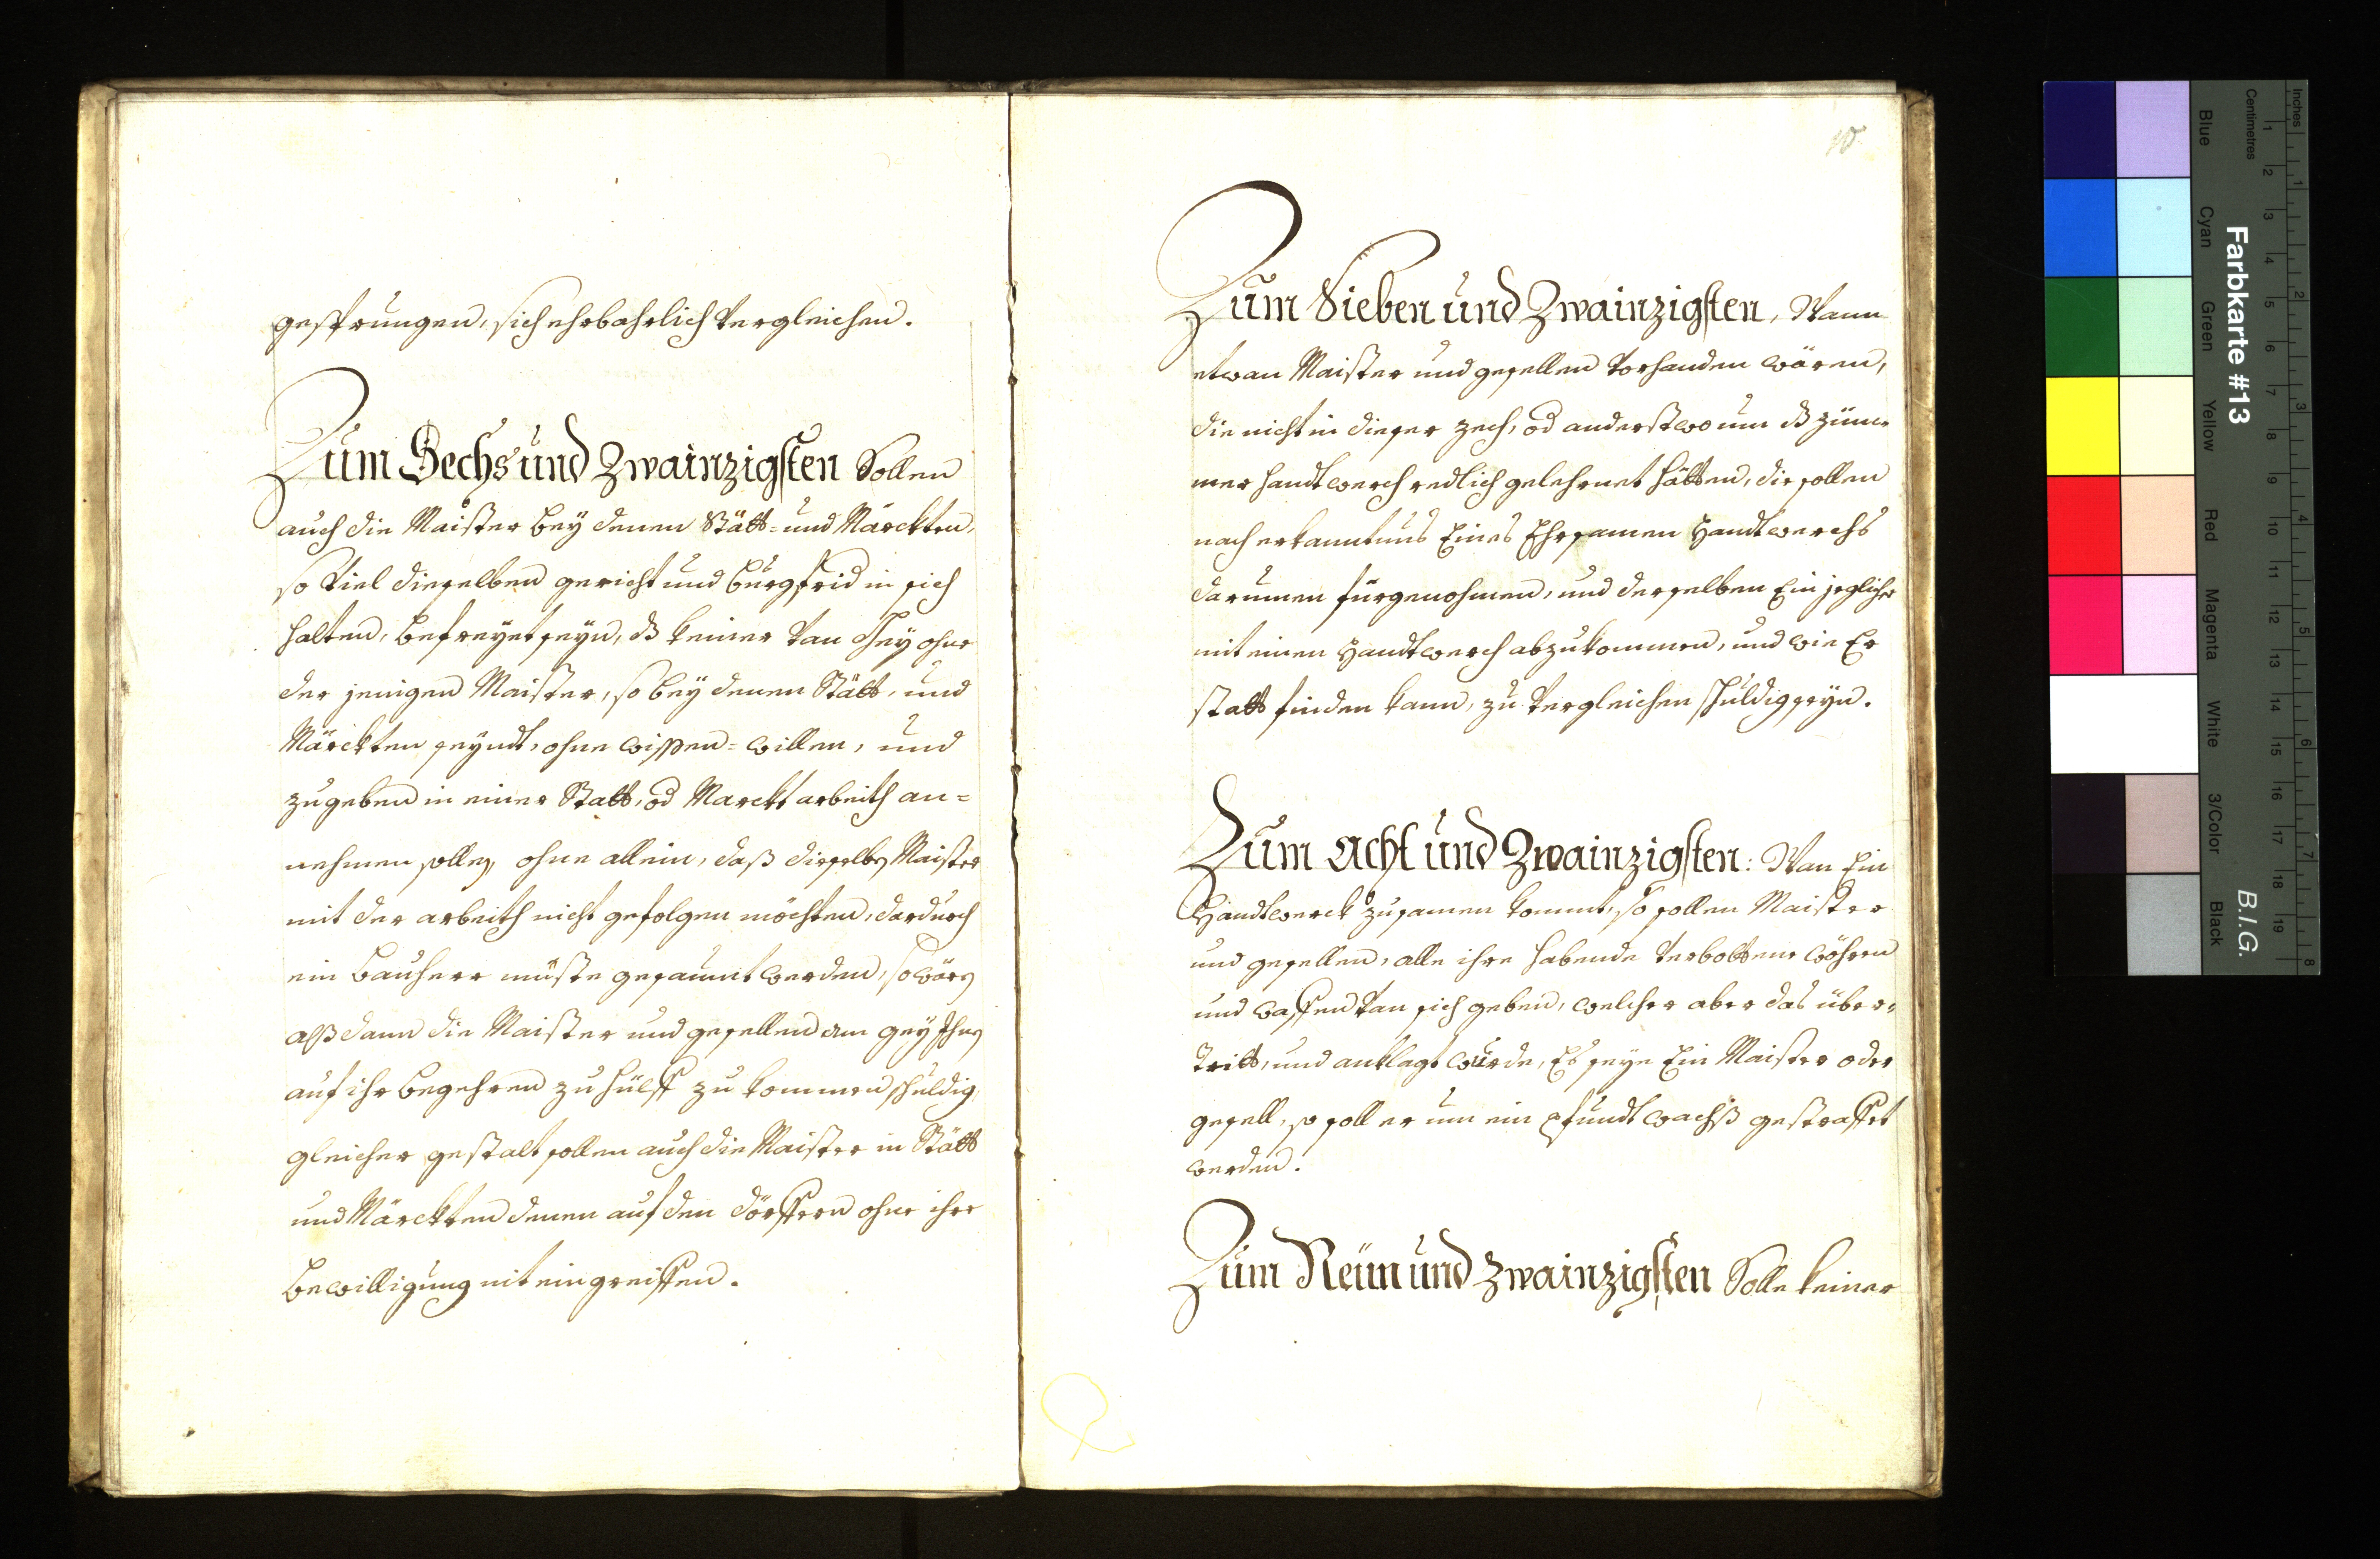 gesprungen, sich ehrbahrlich vergleichen.
Zum Sechs und Zwainzigsten Sollen
auch die Maister bey denen Stätt- und Märckten,
so viel dieselben gericht und burgfrid in sich
halten, befreyet seyn, dß keiner van Gey ohne
der jenigen Maister, so bey denen Stätt, und
Märckten seyndt, ohne wissen- willen, und
zugeben in einer Statt, od Marckt arbeith an-
nehmen solle, ohne allein, daß dieselbe Maister
mit der arbeith nicht gefolgen möchten, dardurch
ein bauherr müste gesaumt werden, so wären
alßdann die Maister und gesellen am gey Ihnen
auf ihr begehren zu hülff zu kommen schuldig,
gleicher gestalt sollen auch die Maister in Stätt
und Märckten denen auf den dörffern ohne ihre
bewilligung nit eingreiffen.
10
Zum Sieben und Zwainzigsten, Wann
etwan Maister und gesellen vorhanden wären,
die nicht in dieser zech, od anderstwo um dß züm-
mer handtwerch redlich gelehrnet hätten, die sollen
nach erkanntnus Eines Ehrsamen Handtwerchs
darumen fürgenohmen, und derselben Ein jeglicher
mit einen Handtwerch abzukommen, und wie Er
statt finden kann, zu vergleichen schuldig seyn.
Zum Acht und Zwainzigsten: Wan Ein
Handtwerck zusamen kommt, so sollen Maister
und gesellen, alle ihre habende verbottene wöhren
und waffen van sich geben, welcher aber das über-
tritt, und anklagt wurde, Es seye Ein Maister oder
gesell, so soll er um ein pfundt wachß gestraffet
werden.
Zum Neün und Zwainzigsten Solle keiner
Farbkarte #13
B.I.G.
Inches
Centimetres
1 2 3 4 5 6 7 8 9 10 11 12 13 14 15 16 17 18 19
1 2 3 4 5 6 7 8
Blue
Cyan
Green
Yellow
Red
Magenta
White
3/Color
Black